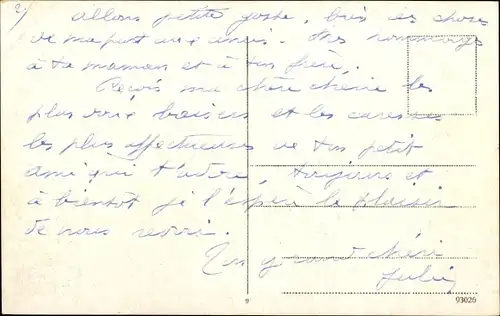 2)
allons petite gosse, bien des choses
de ma part aux amis. Mes hommages
à ta maman et à ton frère.
Reçois ma chère chérie les
plus doux baisers et les caresses
les plus affectueuses de ton petit
ami qui t'adore, toujours et
à bientôt je l'espère le plaisir
de nous revoir.
Ton grand chéri
9
93026